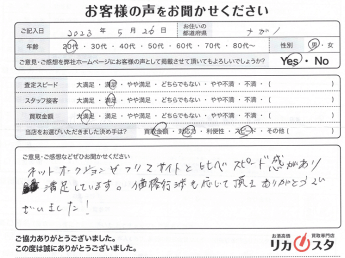 お客様の声をお聞かせください
ご記入日 2023年 5月 26日 お住いの都道府県 ナガノ
年齢 20代・30代・40代・50代・60代・70代・80代〜 性別 男・女
ご意見・ご感想を弊社ホームページにお客様の声として掲載させて頂いてもよろしいでしょうか? Yes・No
査定スピード 大満足・満足・やや満足・どちらでもない・やや不満・不満・( )
スタッフ接客 大満足・満足・やや満足・どちらでもない・やや不満・不満・( )
買取金額 大満足・満足・やや満足・どちらでもない・やや不満・不満・( )
当店をお選びいただきました決め手は? 買取金額・対応力・利便性・スピード・その他( )
ご意見・ご感想などぜひお聞かせください
ネットオークションやフリマサイトと比べスピード感があり
満足しています。価格行渉も応じて頂きありがとうござ
いました!
ご協力ありがとうございました。
この度は誠にありがとうございました。
お酒高価 買取専門店
リカスタ